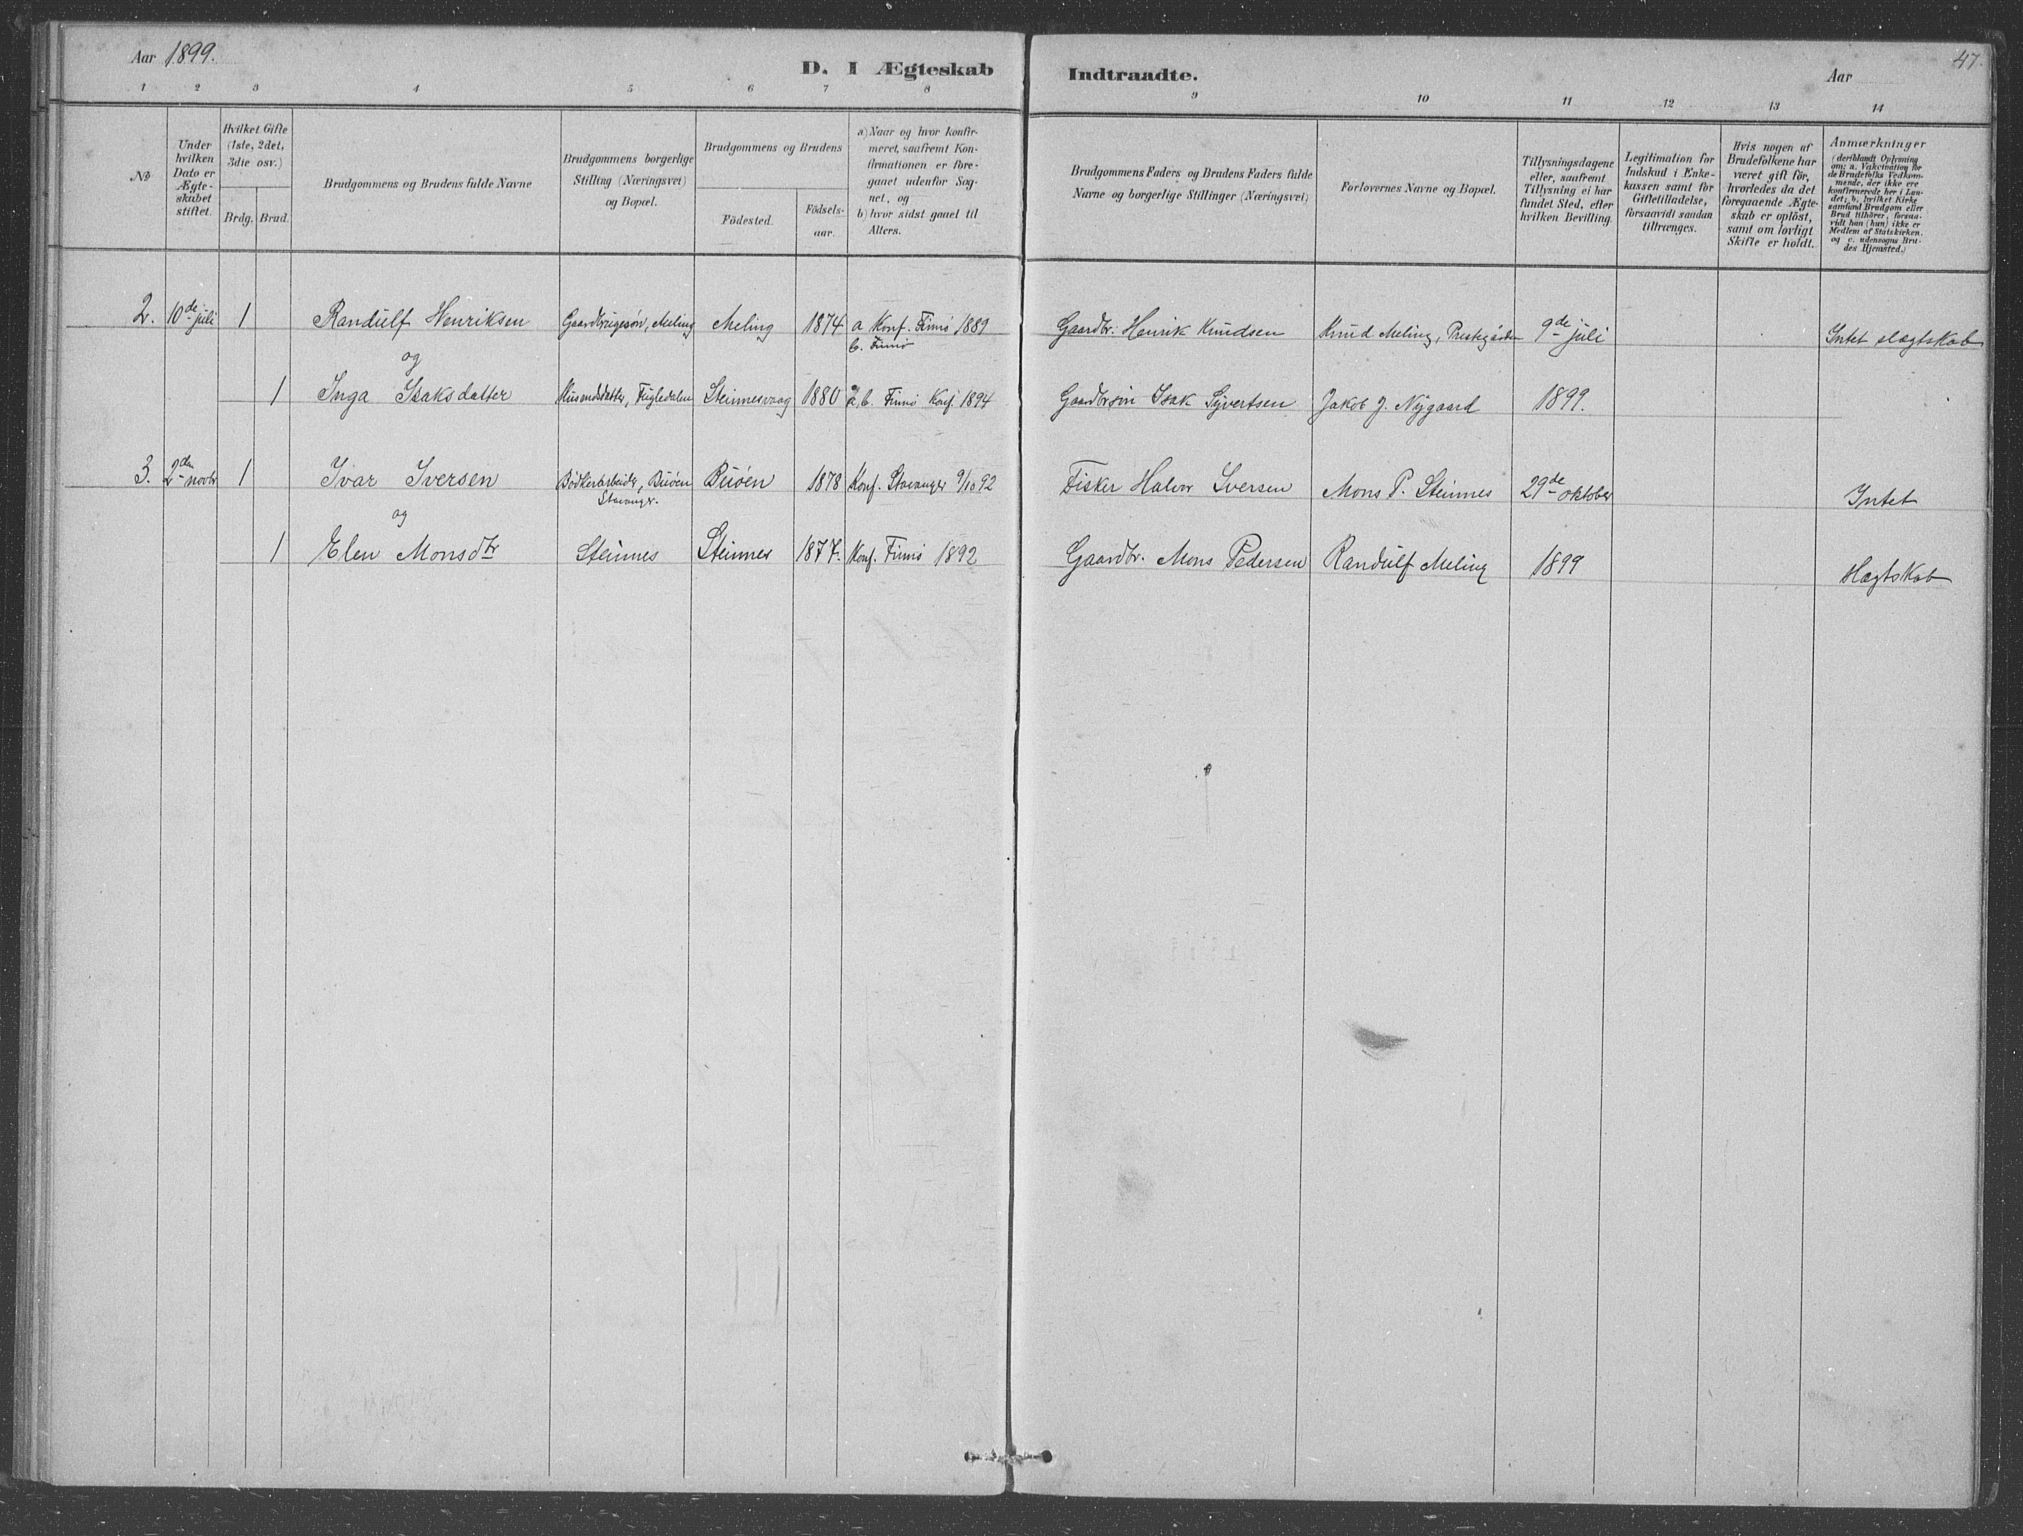 Aar 1899.
D. I Ægteskab Indtraadte.
Aar
47.
1 2 3 4 5 6 7 8 9 10 11 12 13 14
No
Under hvilken Dato er Ægte-skabet stiftet.
Hvilket Gifte (1ste, 2det, 3die osv.)
Brdg. Brud.
Brudgommens og Brudens fulde Navne
Brudgommens borgerlige Stilling (Næringsvei) og Bopæl.
Brudgommens og Brudens
Födested.
Födsels-aar.
a) Naar og hvor konfir-meret, saafremt Kon-firmationen er fore-gaaet udenfor Sog-net, og
b) hvor sidst gaaet til Alters.
Brudgommens Faders og Brudens Faders fulde Navne og borgerlige Stillinger (Næringsvei)
Forlovernes Navne og Bopæl.
Tillysningsdagene eller, saafremt Tillysning ei har fundet Sted, efter hvilken Bevilling.
Legitimation for Indskud i Enke-kassen samt for Giftetilladelse, forsaavidt saadan tiltrænges.
Hvis nogen af Brudefolkene har været gift för, hvorledes da det foregaaende Ægte-skab er oplöst, samt om lovligt Skifte er holdt.
Anmærkninger
(deriblandt Oplysning om: a. Vakcination for de Brudefolks Vedkom-mende, der ikke ere konfirmerede her i Lan-det; b. hvilket Kirke samfund Brudgom eller Brud tilhörer, forsaa-vidt han (hun) ikke er Medlem af Statskirken, og c. udensogns Bru-des Hjemsted.)
2. 10de juli 1 Randulf Henriksen Gaardbrugesøn, Meling Meling 1874 a Konf. Finnø 1889 Gaardbr: Henrik Knudsen Knud Meling, Prestegården 9de juli Intet slægtskab
b. Finnø
og
1 Inga Isaksdatter Husmdsdatter, Fugledalen Steinnesvaag 1880 a, b. Finnø Konf. 1894 Gaardbrsøn Isak Syvertsen Jakob J. Nygaard 1899.
3. 2den novbr 1 Ivar Iversen Bødkerarbeider, Buøen Buøen 1878 Konf. Stavanger 9/10 92 Fisker Halvor Iversen Mons P. Steinnes 29de oktober Intet
Stavanger.
og
1 Elen Monsdtr Steinnes Steinnes 1877. Konf. Finnø 1892 Gaardbr. Mons Pedersen Randulf Meling 1899 slægtskab